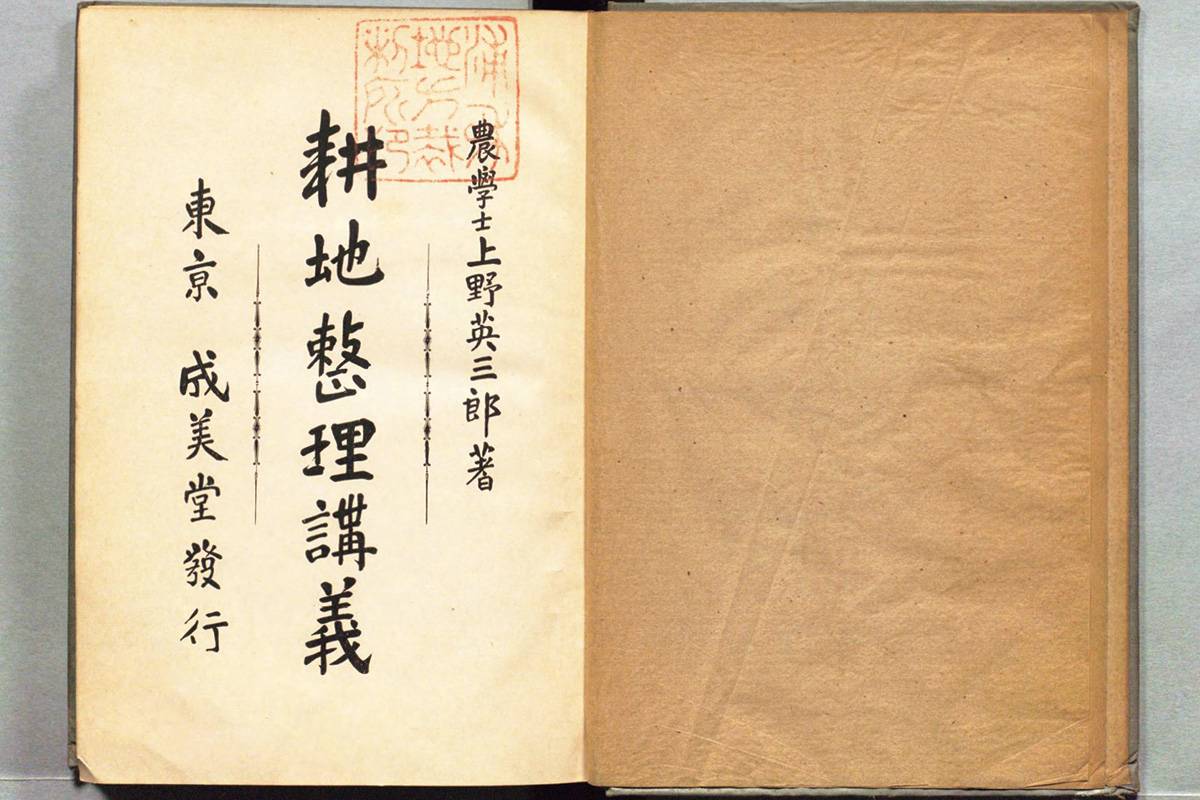 農學士上野英三郎著
耕地整理講義
東京 成美堂發行